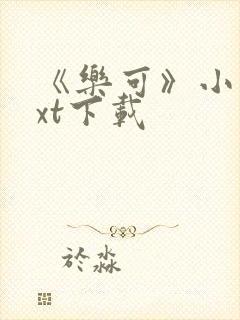 《樂可》小
xt下載
於淼